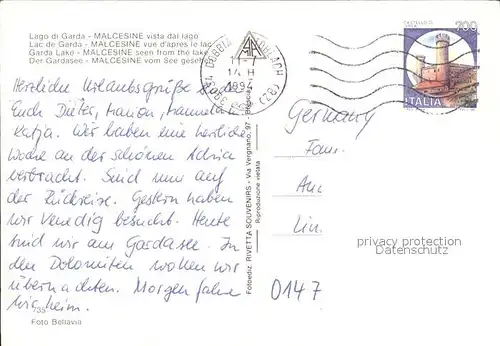 Lago di Garda - MALCESINE vista dal lago
Lac de Garda - MALCESINE vue d'après le lac
Garda Lake - MALCESINE seen from the lake
Der Gardasee - MALCESINE vom See geseh
Herzliche Urlaubsgrüße an
Euch Dieter, Marion,
Katja. Wir haben eine herrliche
Woche an der schönen Adria
verbracht. Sind nun auf
der Rückreise. Gestern haben
wir Venedig besucht. Heute
sind wir am Gardasee. In
den Dolomiten wollen wir
übernachten. Morgen fahren
wir heim.
735
Foto Bellavia
Fotoediz. RIVETTA SOUVENIRS - Via Vergnano, 97 - Brescia
Riproduzione vietata
39034 DOBBIACO TOBLACH (BZ)
14 H
CASTELLO DI
200
ITALIA
Germany
Fam.
An
Lin.
privacy protection
Datenschutz
0147